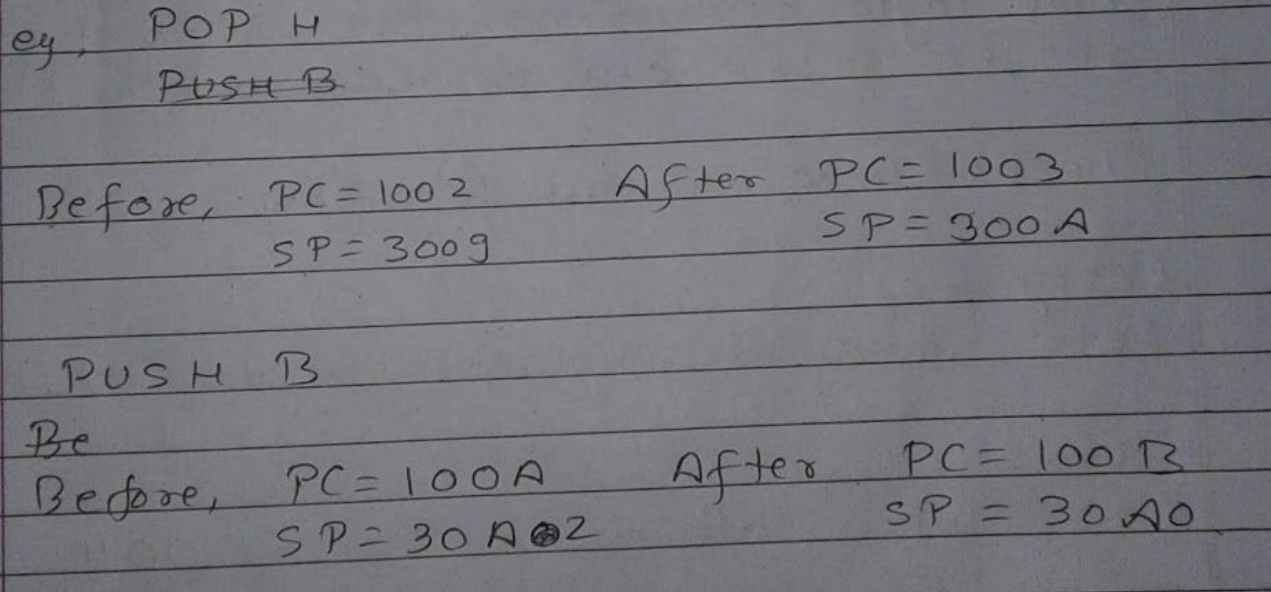 eg, POP H
PUSH B
Before, PC = 1002 After PC = 1003
SP = 3009 SP = 300A
PUSH B
Be
Before, PC = 100A After PC = 100B
SP = 30A2 SP = 30A0